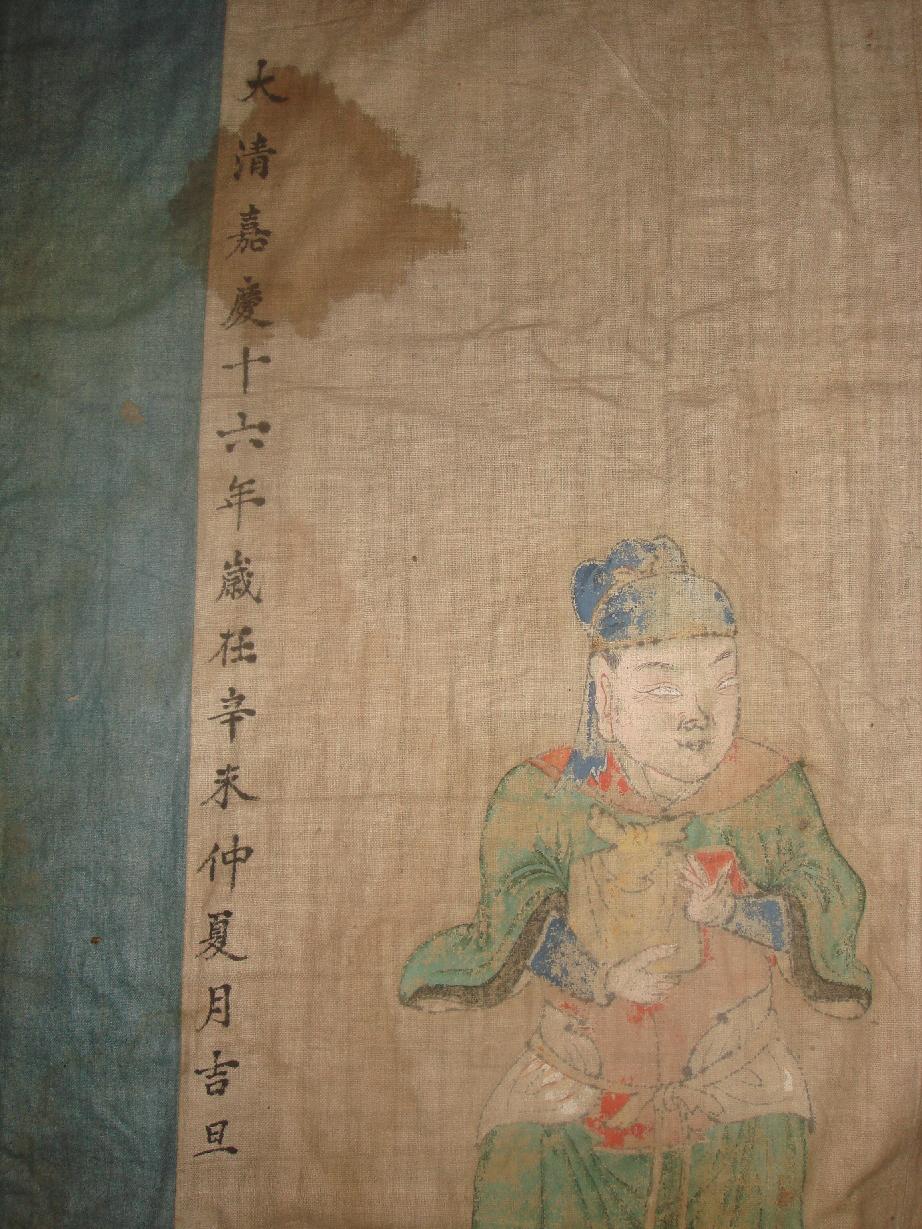 大清嘉慶十六年歲在辛未仲夏月吉旦